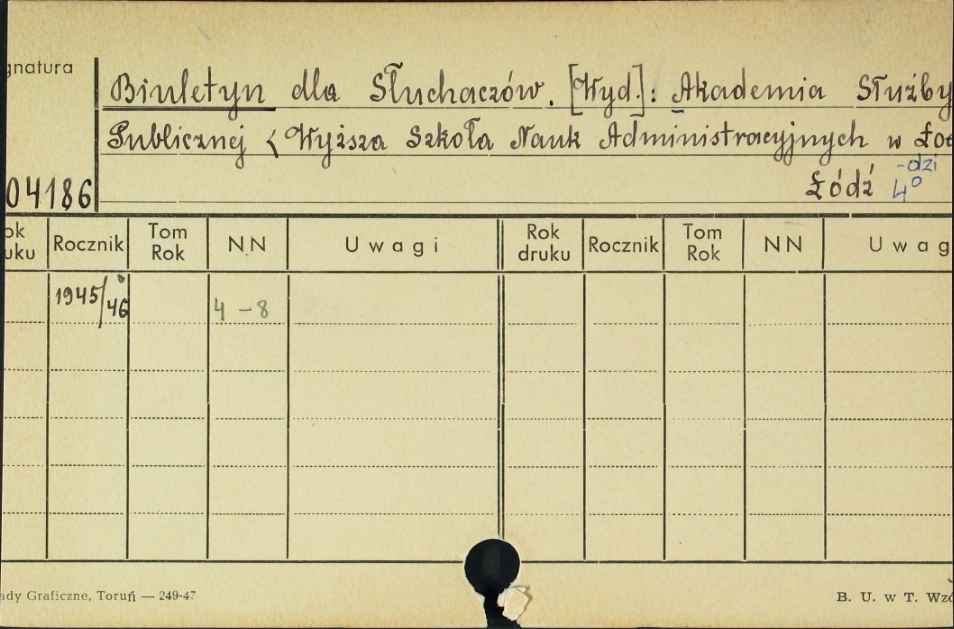 gnatura
Biuletyn dla Słuchaczów. [Wyd.]: Akademia Służby
Publicznej < Wyższa Szkoła Nauk Administracyjnych w Ło
-dzi
04186 Łódź 4°
ok uku Rocznik Tom Rok NN Uwagi Rok druku Rocznik Tom Rok NN Uwag
1945/46 4-8
ady Graficzne, Toruń — 249-47 B. U. w T. Wzó